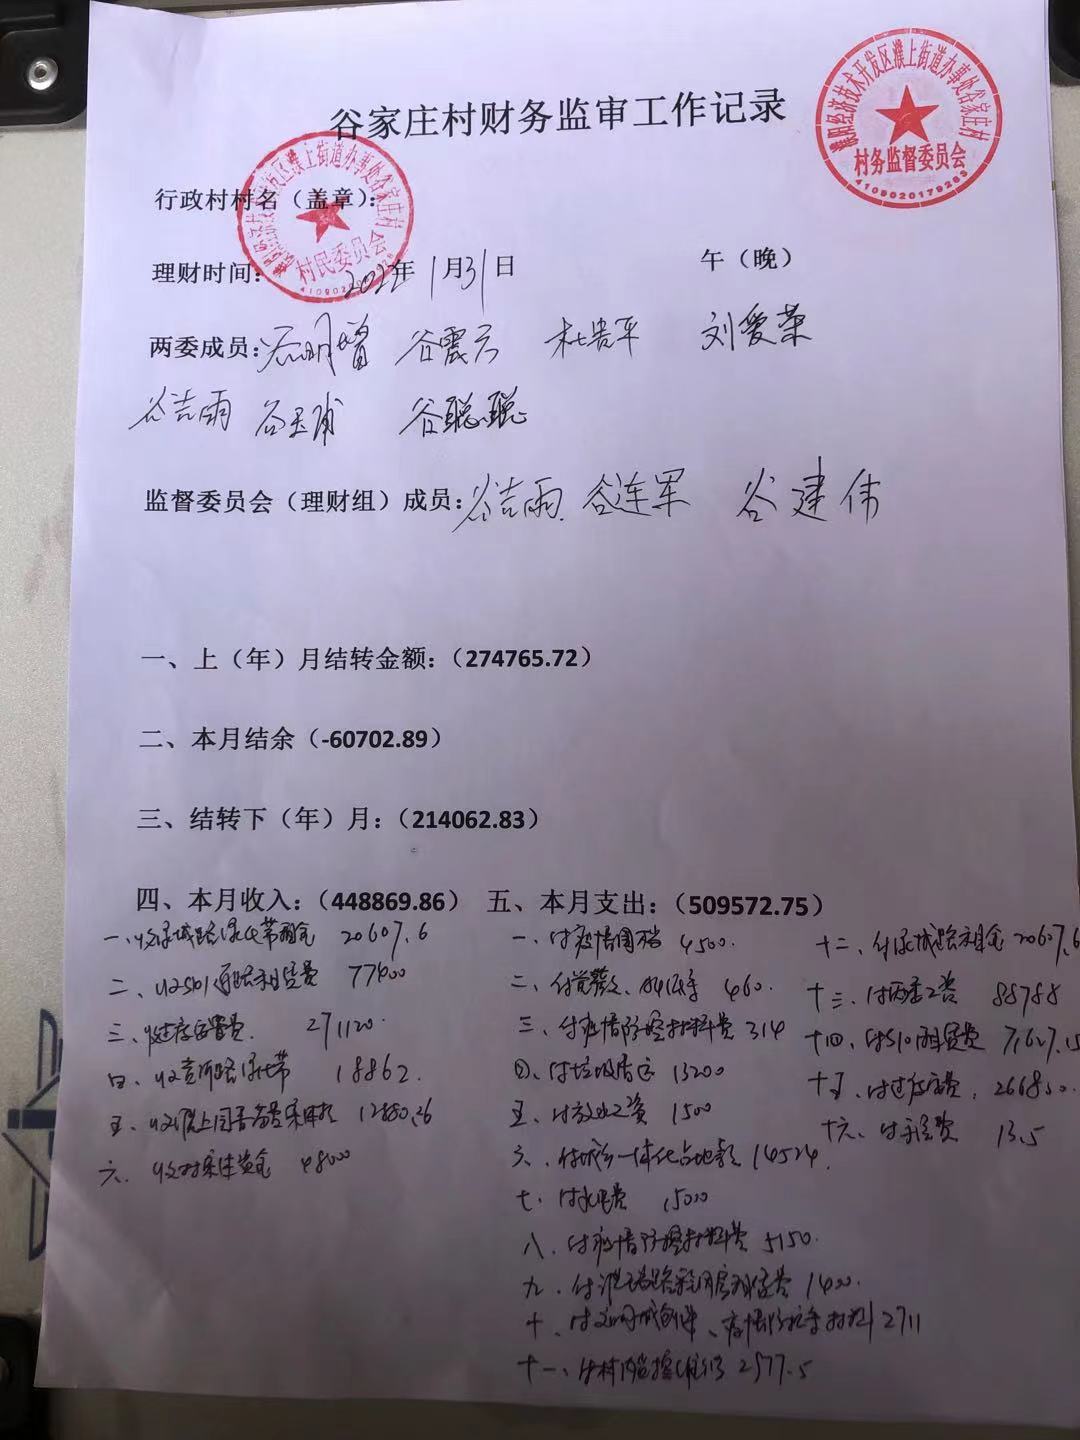 谷家庄村财务监审工作记录
濮阳经济技术开发区濮上街道办事处谷家庄村
村务监督委员会
4109020179283
行政村村名（盖章）：
濮上街道办事处谷家庄村
村民委员会
理财时间： 2022年1月31日 午（晚）
两委成员： 谷震云 杜贵平 刘爱荣
谷吉雨 谷聪聪
监督委员会（理财组）成员：谷吉雨 谷连军 谷建伟
一、上（年）月结转金额：（274765.72）
二、本月结余（-60702.89）
三、结转下（年）月：（214062.83）
四、本月收入：（448869.86） 五、本月支出：（509572.75）
一、收绿城路绿化带租金 20607.6
二、收S101 租赁费 77400
三、收过度安置费 271120.
四、收 路绿化带 18862.
五、收濮上园 12880.26
六、收 资金 48000
一、付疫情围挡 4500.
二、付党费 460.
三、付疫情防控材料费 314
四、付垃圾清运 13200
五、付 工资 1500
六、付城乡一体化占地款 14524.
七、付水电费 15000
八、付疫情防控材料费 5150.
九、付 路 租赁费 1400.
十、付文明城创建、疫情防控等材料 2711
十一、付村内监控 2577.5
十二、付绿城路租金 20607.6
十三、付两委工资 88788
十四、付S101租赁费 71627.15
十五、付过度费 266850.
十六、付手续费 13.5